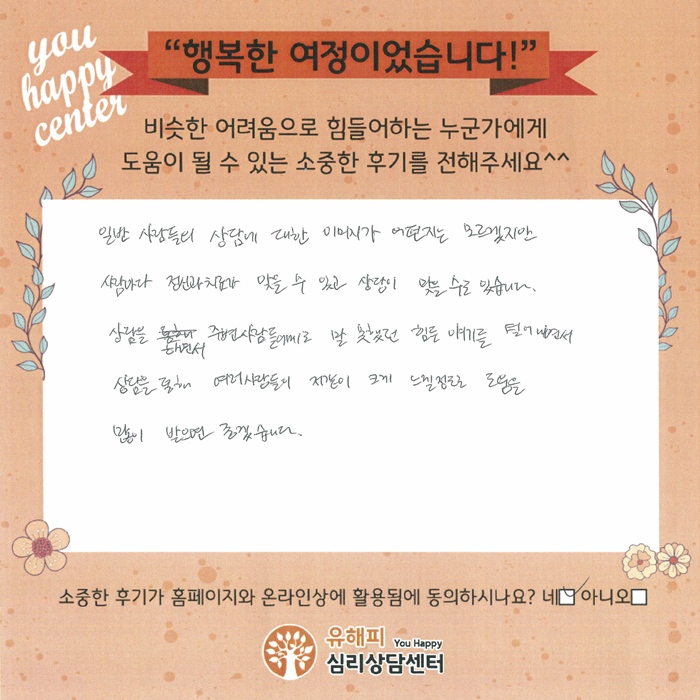 you
happy
center
“행복한 여정이었습니다!”
비슷한 어려움으로 힘들어하는 누군가에게
도움이 될 수 있는 소중한 후기를 전해주세요^^
일반 사람들의 상담에 대한 이미지가 어떤지는 모르겠지만
사람마다 정신과치료가 맞을 수 있고 상담이 맞을 수도 있습니다.
상담을 하면서 주변사람들에게도 말 못했던 힘든 얘기를 털어내면서
상담을 통해 여러사람들의 자존이 크게 느낄정도로 도움을
많이 받으면 좋겠습니다.
소중한 후기가 홈페이지와 온라인상에 활용됨에 동의하시나요? 네☑ 아니오☐
유해피 You Happy
심리상담센터